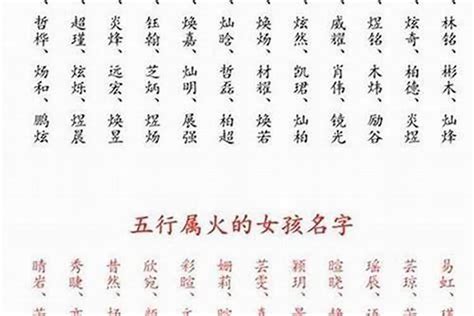 林铭、彬木、灿烽
炫奇、柏德、炎煜
煜铭、木炜、励谷
威耀、肖伟、镜光
炫然、凯珺、灿柏
焕炀、材耀、焕若
灿晗、哲磊、柏超
焕嘉、灿明、展强
钰翰、芝炳、煜炀
炎烽、远宏、焕昱
超瑾、炫烁、煜晨
哲桦、炀和、鹏炫
五行属火的女孩名字
易虹、
芸琼、
瑶辰、
暄晓、
颖玥、
芸雯、
姗莉、
彩暄、
欣宛、
昔然、
秀睫、
晴岩、